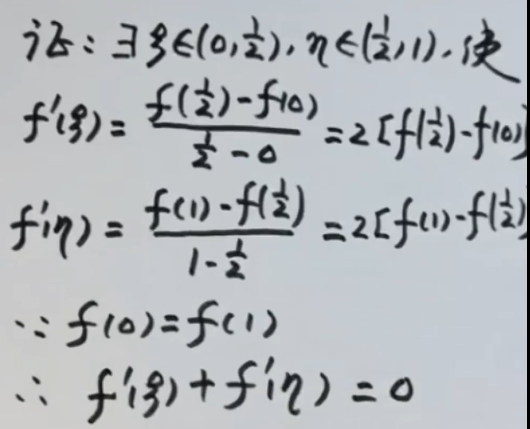 证：∃ξ∈(0,1/2), η∈(1/2,1), 使
f'(ξ) = (f(1/2)-f(0))/(1/2-0) = 2[f(1/2)-f(0)]
f'(η) = (f(1)-f(1/2))/(1-1/2) = 2[f(1)-f(1/2)
∵ f(0)=f(1)
∴ f'(ξ)+f'(η)=0